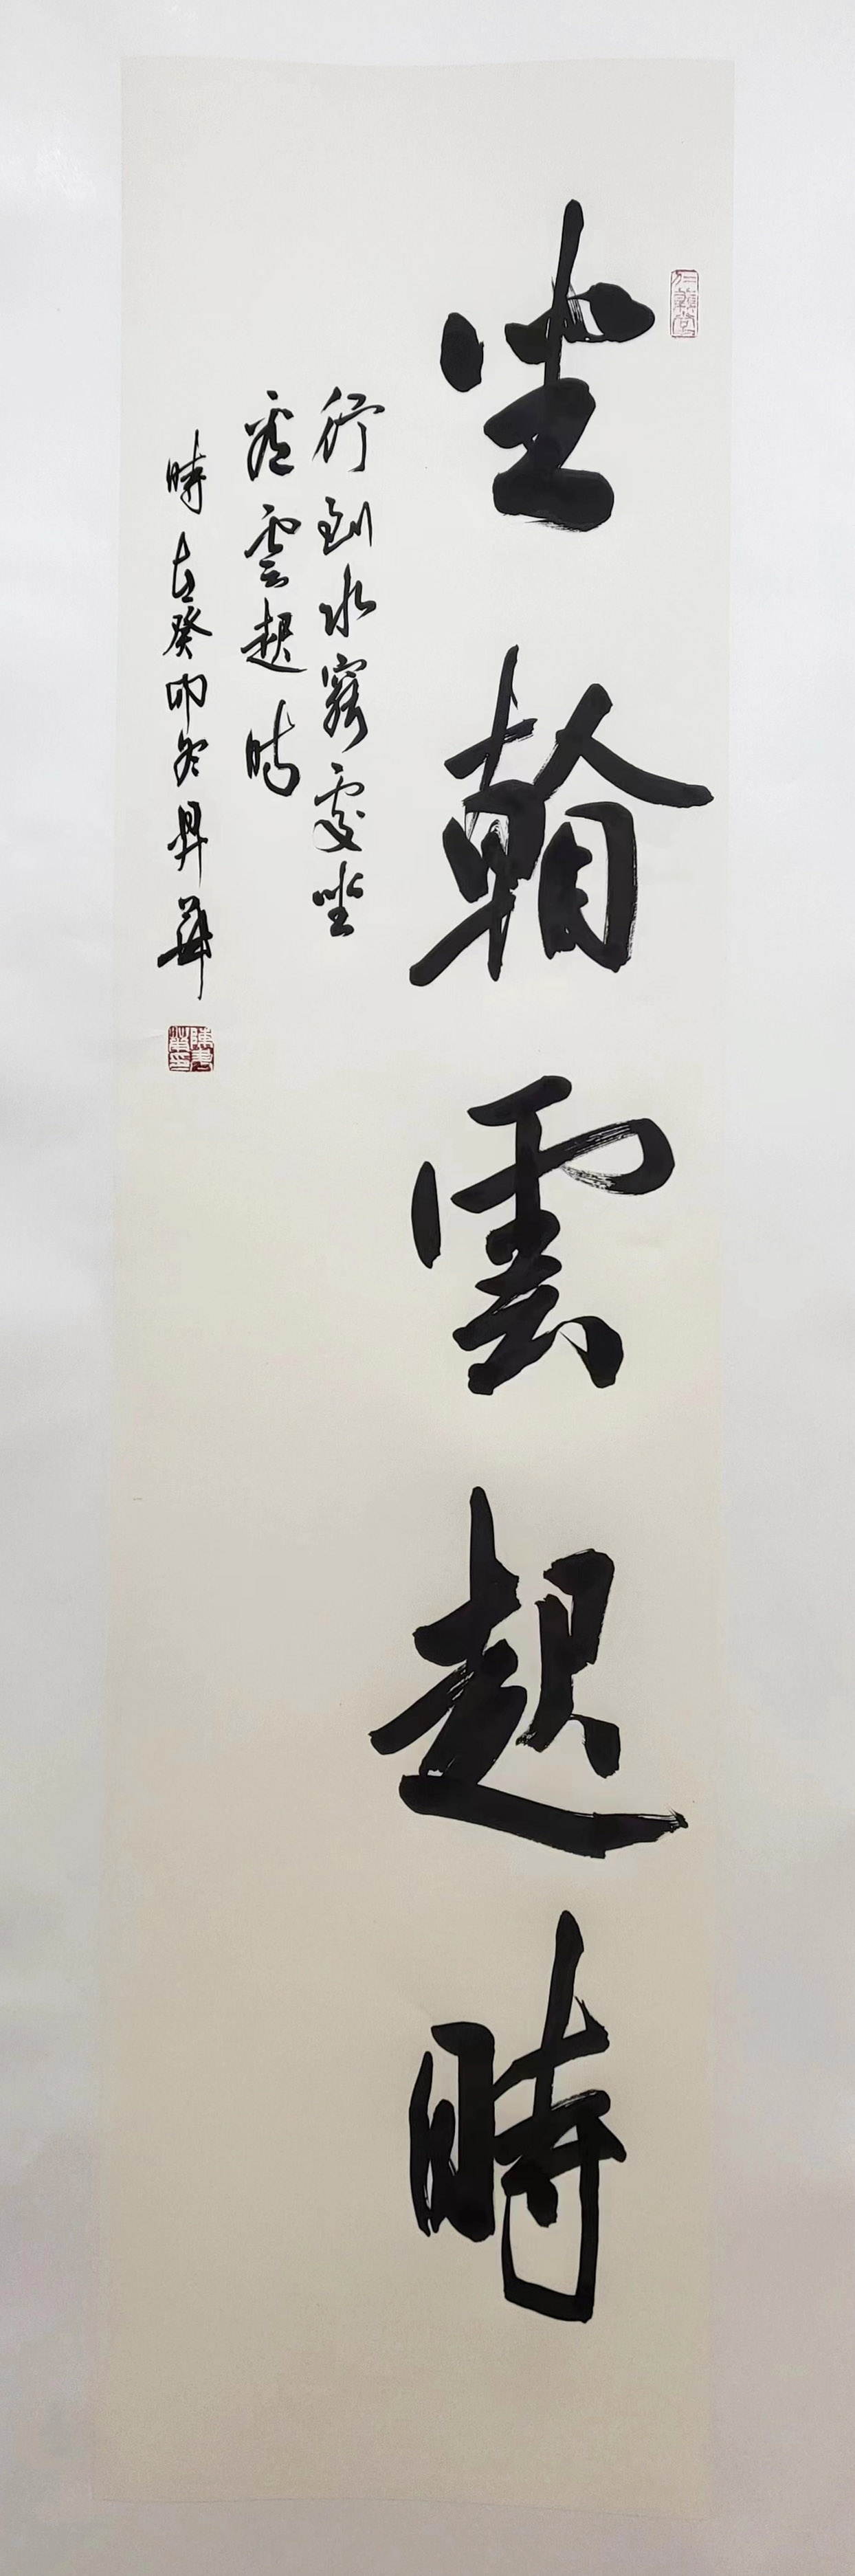 坐看雲起時
行到水窮處坐
看雲起時
時在癸卯冬昇華